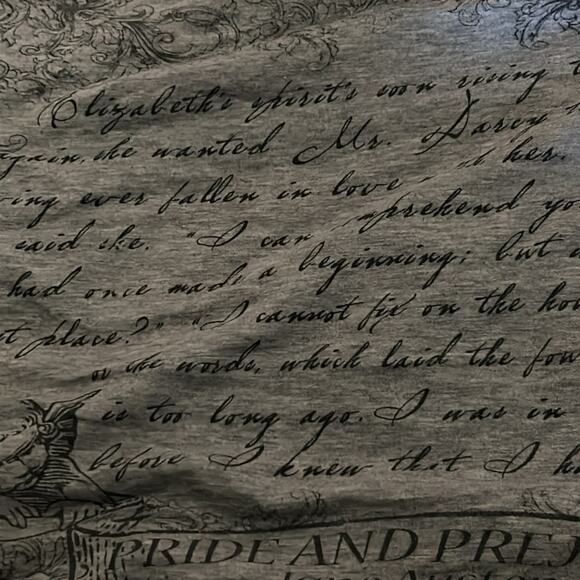 Elizabeth's spirit's soon rising t
again, she wanted Mr. Darcy
ving ever fallen in love her.
said she. "I can prehend yo
had once made a beginning; but
t place?" "I cannot fix on the hou
or the words, which laid the fou
is too long ago. I was in
before I knew that I h
PRIDE AND PREJ